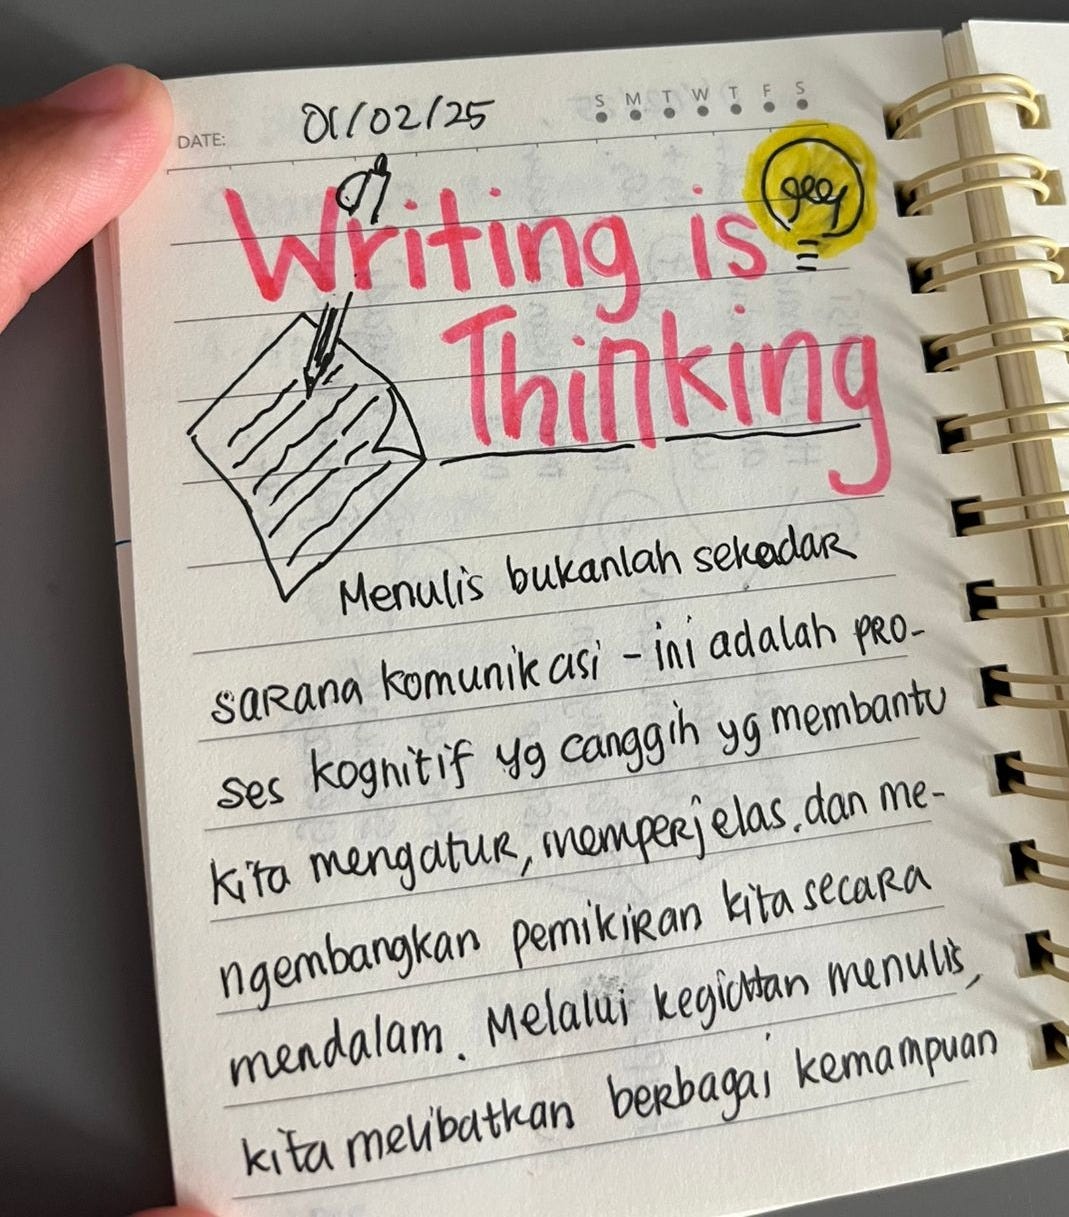 S M T W T F S
DATE: 01/02/25
Writing is
Thinking
Menulis bukanlah sekadar
sarana komunikasi - ini adalah pro-
ses kognitif yg canggih yg membantu
kita mengatur, memperjelas, dan me-
ngembangkan pemikiran kita secara
mendalam. Melalui kegiatan menulis,
kita melibatkan berbagai kemampuan